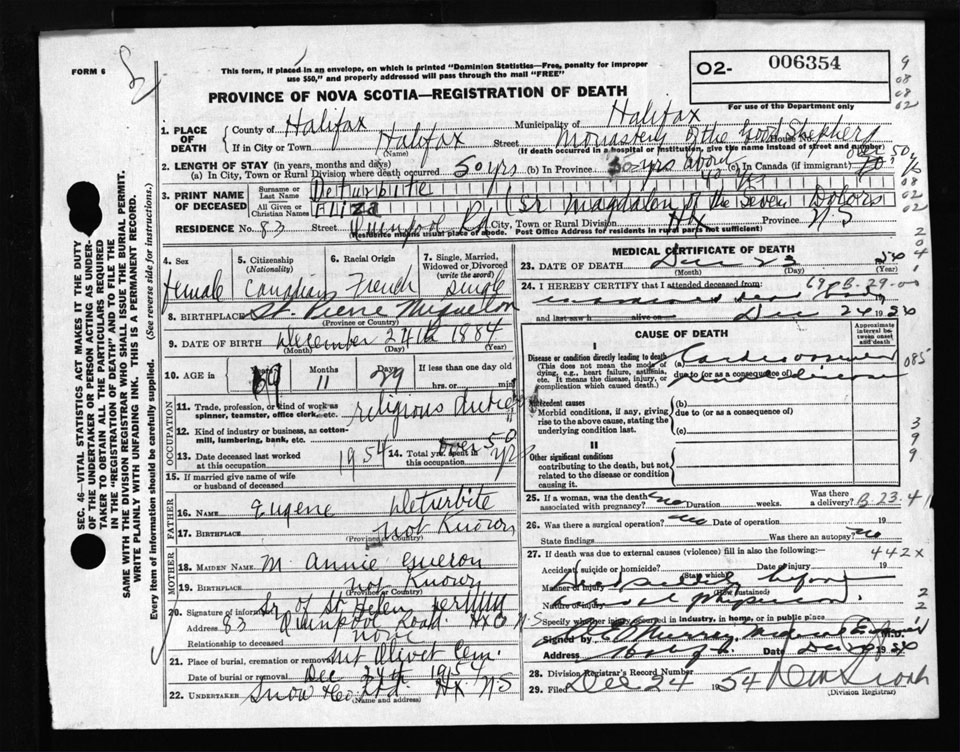 FORM 6
This form, if placed in an envelope, on which is printed "Dominion Statistics—Free, penalty for improper
use $50," and properly addressed will pass through the mail "FREE"
PROVINCE OF NOVA SCOTIA—REGISTRATION OF DEATH
O2- 006354
For use of the Department only
9
08
08
02
1. PLACE OF DEATH
County of Halifax Municipality of Halifax
If in City or Town Halifax Street Monastery of the Good Shepherd House No.
(Name) (If death occurred in a hospital or institution, give the name instead of street and number)
2. LENGTH OF STAY (in years, months and days)
(a) In City, Town or Rural Division where death occurred 50 yrs (b) In Province 50 yrs about (c) In Canada (if immigrant) over 50
3. PRINT NAME OF DECEASED
Surname or Last Name Deturbite
All Given or Christian Names Eliza (Sr. Magdalen of the Seven Dolors
RESIDENCE No. 83 Street Quinpool Rd City, Town or Rural Division Hx Province N.S
(Residence means usual place of abode. Post Office Address for residents in rural parts not sufficient)
4. Sex female
5. Citizenship (Nationality) Canadian
6. Racial Origin French
7. Single, Married, Widowed or Divorced (write the word) single
8. BIRTHPLACE St. Pierre Miquelon
(Province or Country)
9. DATE OF BIRTH December 24th 1884
(Month) (Day) (Year)
10. AGE in Years Months 11 Days 29 If less than one day
hrs. or min.
OCCUPATION
11. Trade, profession, or kind of work as spinner, teamster, office clerk, etc. religious duties
12. Kind of industry or business, as cotton-mill, lumbering, bank, etc.
13. Date deceased last worked at this occupation 1954 14. Total yrs. spent in this occupation over 50 yrs
15. If married give name of wife or husband of deceased
FATHER
16. NAME Eugene Deturbite
17. BIRTHPLACE not Known
(Province or Country)
MOTHER
18. MAIDEN NAME M. Annie Gueron
19. BIRTHPLACE not Known
(Province or Country)
20. Signature of informant Sr. of St. Helen
Address 83 Quinpool Road. Hx N.S
Relationship to deceased none
21. Place of burial, cremation or removal Mt Olivet Cem.
Date of burial or removal Dec 24th 195
22. UNDERTAKER Snow & Co. Ltd. Hx NS
(Name and address)
MEDICAL CERTIFICATE OF DEATH
23. DATE OF DEATH Dec 23 1954
(Month) (Day) (Year)
24. I HEREBY CERTIFY that I attended deceased from:
and last saw h alive on Dec 24 1954
CAUSE OF DEATH
Approximate interval between onset and death
I
Disease or condition directly leading to death
(This does not mean the mode of dying, e.g., heart failure, asthenia, etc. It means the disease, injury, or complication which caused death.)
(a)
due to (or as a consequence of)
Antecedent causes
Morbid conditions, if any, giving rise to the above cause, stating the underlying condition last.
(b)
due to (or as a consequence of)
(c)
II
Other significant conditions
contributing to the death, but not related to the disease or condition causing it.
25. If a woman, was the death associated with pregnancy? no Duration weeks. Was there a delivery?
26. Was there a surgical operation? no Date of operation 19
State findings Was there an autopsy? no
27. If death was due to external causes (violence) fill in also the following:
442x
Accident, suicide or homicide? (State which) Date of injury 19
Manner of injury (How sustained)
Nature of injury
Specify whether injury occurred in industry, in home, or in public place
Signed by Murray M.D.
Address Date Dec 1954
28. Division Registrar's Record Number
29. Filed Dec 24 1954
(Division Registrar)
SEC. 46—VITAL STATISTICS ACT MAKES IT THE DUTY
OF THE UNDERTAKER OR PERSON ACTING AS UNDER-
TAKER TO OBTAIN ALL THE PARTICULARS REQUIRED
IN THE "REGISTRATION OF DEATH" AND TO FILE THE
SAME WITH THE DIVISION REGISTRAR WHO SHALL ISSUE THE BURIAL PERMIT.
WRITE PLAINLY WITH UNFADING INK. THIS IS A PERMANENT RECORD.
Every item of information should be carefully supplied. (See reverse side for instructions.)